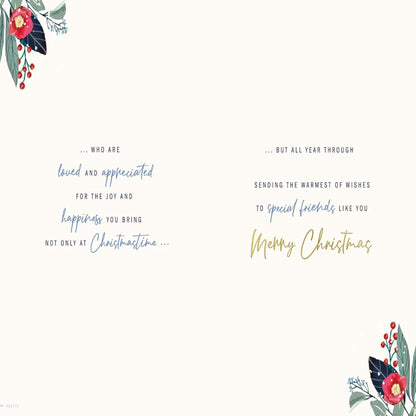 ... WHO ARE
loved AND appreciated
FOR THE JOY AND
happiness YOU BRING
NOT ONLY AT Christmastime ...
... BUT ALL YEAR THROUGH
SENDING THE WARMEST OF WISHES
TO special friends LIKE YOU
Merry Christmas